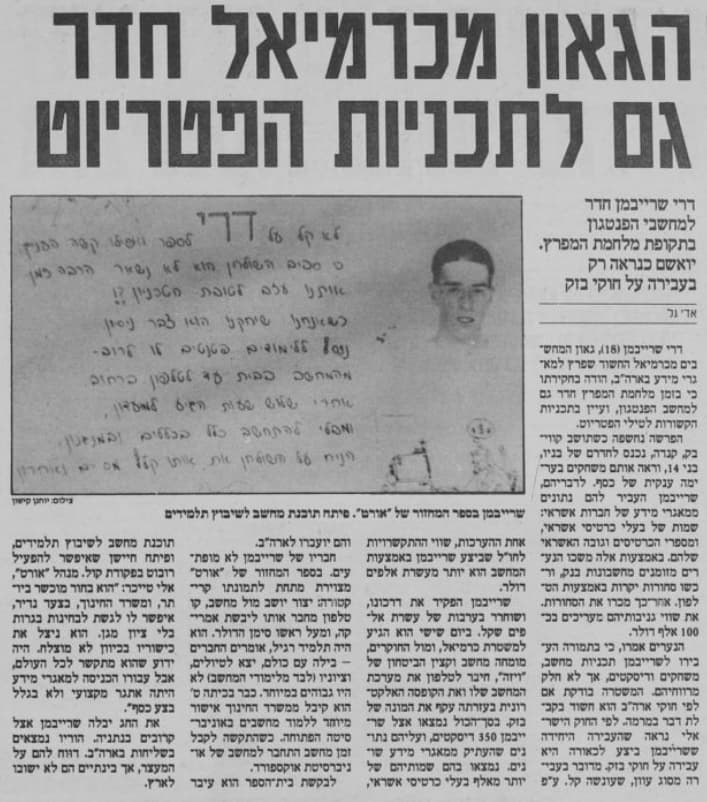 הגאון מכרמיאל חדר
גם לתכניות הפטריוט
דרי שרייבמן חדר
למחשבי הפנטגון
בתקופת מלחמת המפרץ.
יואשם כנראה רק
בעבירה על חוקי בזק
אדי גל
דרי שרייבמן (18), גאון המחש־
בים מכרמיאל החשוד שפרץ למא־
גרי מידע בארה"ב, הודה בחקירתו
כי בזמן מלחמת המפרץ חדר גם
למחשב הפנטגון, ועיין בתכניות
הקשורות לטילי הפטריוט.
הפרשה נחשפה כשתושב קווי־
בק, קנדה, נכנס לחדרם של בניו,
בני 14, וראה אותם משחקים בער־
ימה ענקית של כסף. לדבריהם,
שרייבמן העביר להם נתונים
ממאגרי מידע של חברות אשראי:
שמות של בעלי כרטיסי אשראי,
ומספרי הכרטיסים וגובה האשראי
שלהם. באמצעות אלה משכו הנע־
רים מזומנים מחשבונות בנק, ור־
כשו סחורות יקרות באמצעות הט־
לפון. אחר־כך מכרו את הסחורות.
את שווי גניבותיהם מעריכים בכ־
100 אלף דולר.
הנערים אמרו, כי בתמורה הע־
בירו לשרייבמן תכניות מחשב,
משחקים ודיסקטים, אך לא חלק
מרווחיהם. המשטרה בודקת אם
לפי חוקי ארה"ב הוא חשוד בקב־
לת דבר במרמה. לפי החוק הישר־
אלי נראה שהעבירה היחידה
ששרייבמן ביצע לכאורה היא
עבירה על חוקי בזק. מדובר בעבי־
רה מסוג עוון, שעונשה קל. ע"פ
לא קל על דרי לספר ואפילו קשה העניין
סביב השולחן הוא לא נשאר הרבה זמן
אותנו עזב לטובת הטכניון ?!
כשאנחנו שיחקנו הוא צבר ניסיון
פטנטים לו לרוב־
מהמחשב בבית עד לטלפון ברחוב
אחרי שלוש שעות הגיע למועדון,
ומבלי להתחשב כלל בכללים ובמנגנון,
הניח על השולחן את אותו קלף
צילום: יוחנן קישון
שרייבמן בספר המחזור של "אורט". פיתח תוכנת מחשב לשיבוץ תלמידים
אחת ההערכות, שווי ההתקשרויות
לחו"ל שביצע שרייבמן באמצעות
המחשב הוא יותר מעשרת אלפים
דולר.
שרייבמן הפקיד את דרכונו,
ושוחרר בערבות של עשרת אל־
פים שקל. ביום שישי הוא הגיע
למשטרת כרמיאל, ומול החוקרים,
מומחה מחשב וקצין הביטחון של
"ויזה", חיבר לטלפון את מערכת
המחשב שלו ואת הקופסה האלקט־
רונית בעזרתה עקף את המונה של
בזק. בסך־הכול נמצאו אצל שר־
ייבמן 350 דיסקטים, ועליהם נתו־
נים שהעתיק ממאגרי מידע שו־
נים. נמצאו בהם שמותיהם של
יותר מאלף בעלי כרטיסי אשראי,
והם יועברו לארה"ב.
חבריו של שרייבמן לא מופת־
עים. בספר המחזור של "אורט"
מצוירת מתחת לתמונתו קרי־
קטורה: יצור יושב מול מחשב, קו
טלפון מחבר אותו ליבשת אמרי־
קה, ומעל ראשו סימן הדולר. הוא
היה תלמיד רגיל, אומרים החברים
– בילה עם כולם, יצא לטיולים,
וציוניו (לבד מלימודי המחשב) לא
היו גבוהים במיוחד. כבר בכיתה ט'
הוא קיבל ממשרד החינוך אישור
מיוחד ללמוד מחשבים באוניבר־
סיטה הפתוחה. כשהתקשה לקבל
זמן מחשב התחבר למחשב של או־
ניברסיטת אוקספורד.
לבקשת בית־הספר הוא עיבד
תוכנת מחשב לשיבוץ תלמידים,
ופיתח חיישן שאיפשר להפעיל
רובוט בפקודת קול. מנהל "אורט",
אלי טייכר: "הוא בחור מוכשר ביו־
תר, ומשרד החינוך, בצעד נדיר,
איפשר לו לגשת לבחינות בגרות
בלי ציון מגן. הוא ניצל את
כישוריו בכיוון לא מוצלח. היה
ידוע שהוא מתקשר לכל העולם,
אבל עבורו הכניסה למאגרי מידע
היתה אתגר מקצועי ולא בגלל
בצע כסף".
את החג יבלה שרייבמן אצל
קרובים בנתניה. הוריו נמצאים
בשליחות בארה"ב. דווח להם על
המעצר, אך בינתיים הם לא ישובו
לארץ.